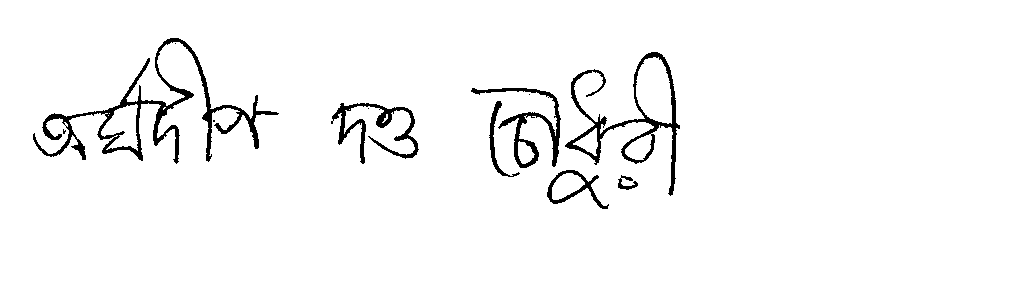 অর্ঘ্যদীপ দত্ত চৌধুরী